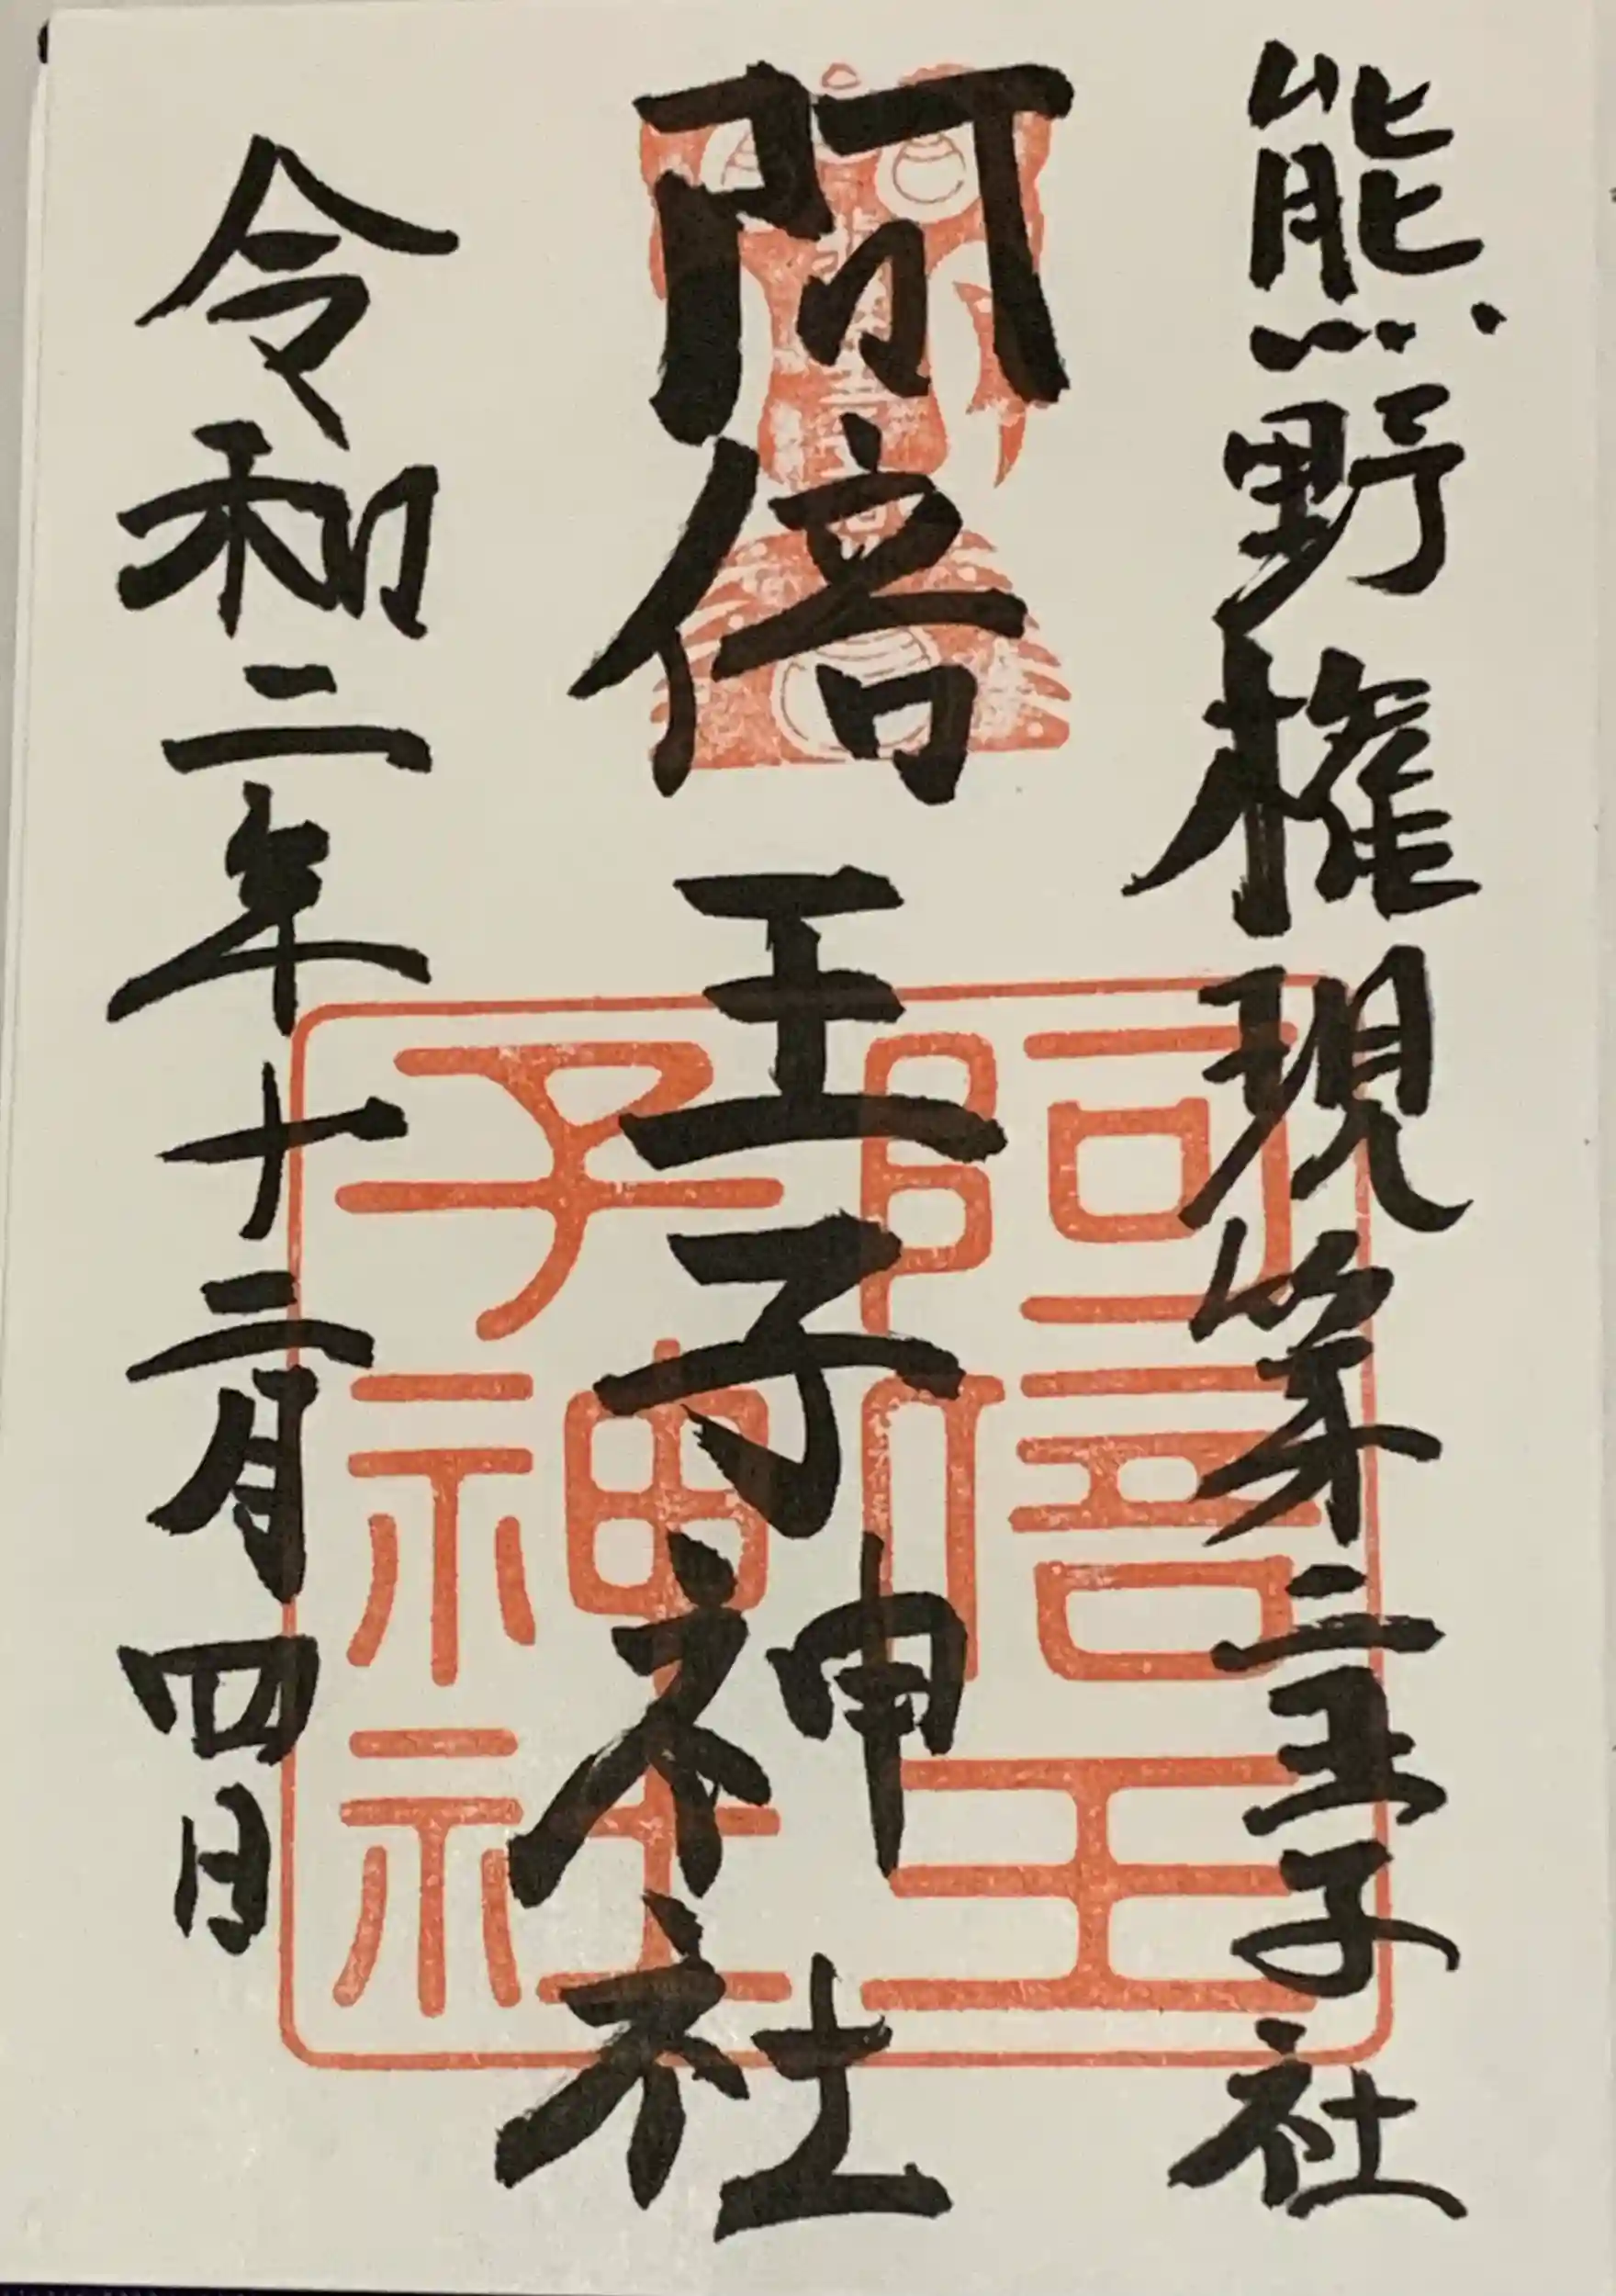 熊野権現第二王子社
阿倍王子神社
令和二年十二月四日
阿倍王
子神社